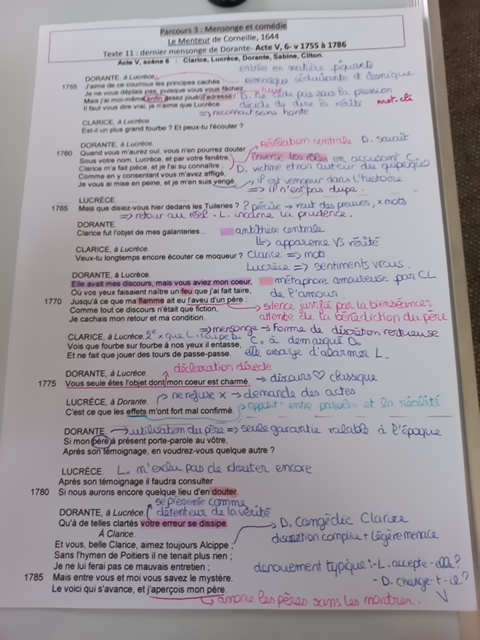 Parcours 3 : Mensonge et comédie
Le Menteur de Corneille, 1644
Texte 11 : dernier mensonge de Dorante- Acte V, 6- v 1755 à 1786
Acte V, scène 6 : Clarice, Lucrèce, Dorante, Sabine, Cliton.
entrée en matière piquante
DORANTE, à Lucrèce.
1755 J'aime de ce courroux les principes cachés : remarque séduisante et ironique
Je ne vous déplais pas, puisque vous vous fâchez.
Mais j'ai moi-même enfin assez joué d'adresse : D. ne nie pas sous la pression
Il faut vous dire vrai, je n'aime que Lucrèce. décide de dire la vérité mot clé
=> reconnaît sans honte
CLARICE, à Lucrèce.
Est-il un plus grand fourbe ? Et peux-tu l'écouter ?
DORANTE, à Lucrèce. Révélation centrale D. savait
1760 Quand vous m'aurez ouï, vous n'en pourrez douter.
Sous votre nom, Lucrèce, et par votre fenêtre, inverse les rôles en accusant C.
Clarice m'a fait pièce, et je l'ai su connaître ; D. victime et non auteur du quiproquo
Comme en y consentant vous m'avez affligé,
Je vous ai mise en peine, et je m'en suis vengé. il est vengeur dans l'histoire
=> il n'est pas dupe.
LUCRÈCE.
1765 Mais que disiez-vous hier dedans les Tuileries ? ? précise -> veut des preuves, x mots
=> retour au réel - L. incarne la prudence.
DORANTE.
Clarice fut l'objet de mes galanteries... antithèse centrale
apparence VS vérité
CLARICE, à Lucrèce.
Veux-tu longtemps encore écouter ce moqueur ? Clarice => mots
Lucrèce => sentiments vrais.
DORANTE, à Lucrèce.
Elle avait mes discours, mais vous aviez mon coeur,
Où vos yeux faisaient naître un feu que j'ai fait taire, métaphore amoureuse par CL
de l'amour
1770 Jusqu'à ce que ma flamme ait eu l'aveu d'un père :
Comme tout ce discours n'était que fiction, silence justifié par la bienséance
Je cachais mon retour et ma condition. attente de la bénédiction du père
=> mensonge -> forme de dévotion vertueuse
CLARICE, à Lucrèce. 2e x que L. coupe D.
Vois que fourbe sur fourbe à nos yeux il entasse, C. a démasqué D.
Et ne fait que jouer des tours de passe-passe. elle essaye d'alarmer L.
déclaration directe
DORANTE, à Lucrèce.
1775 Vous seule êtes l'objet dont mon coeur est charmé. -> discours ♡ classique
LUCRÈCE, à Dorante. ne refuse x -> demande des actes
C'est ce que les effets m'ont fort mal confirmé. oppos° entre paroles et la réalité
DORANTE. -> utilisation du père => seule garantie valable à l'époque
Si mon père à présent porte-parole au vôtre,
Après son témoignage, en voudrez-vous quelque autre ?
LUCRÈCE. L. n'exclu pas de douter encore
Après son témoignage il faudra consulter
1780 Si nous aurons encore quelque lieu d'en douter.
se présente comme
DORANTE, à Lucrèce. détenteur de la vérité
Qu'à de telles clartés votre erreur se dissipe.
À Clarice. D. congédie Clarice
Et vous, belle Clarice, aimez toujours Alcippe ; discrétion complice + légère menace
Sans l'hymen de Poitiers il ne tenait plus rien ;
Je ne lui ferai pas ce mauvais entretien ; dénouement typique : - L. accepte-elle ?
1785 Mais entre vous et moi vous savez le mystère. - D. change-t-il ?
Le voici qui s'avance, et j'aperçois mon père.
annonce les pères sans les montrer.